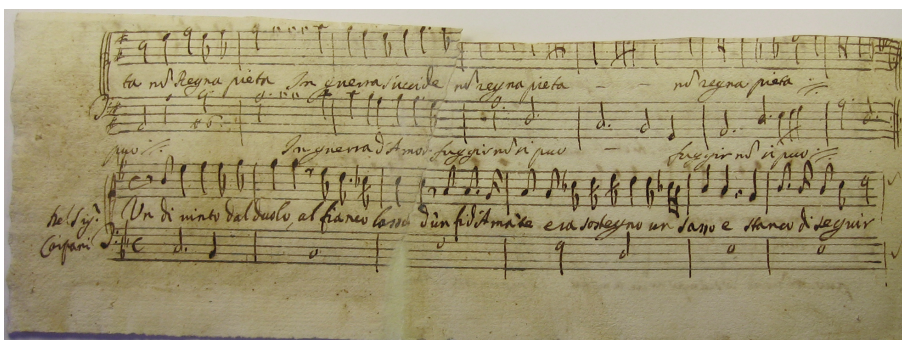 ta no Regna pieta In guerra s'uccide no regna pieta no regna pieta
può In guerra d'Amor fuggir no si puo fuggir no si può
Un di vinto dal duolo, al fianco lasso d'un fid'Amate era sostegno un sasso e stanco di seguir
del Sigr